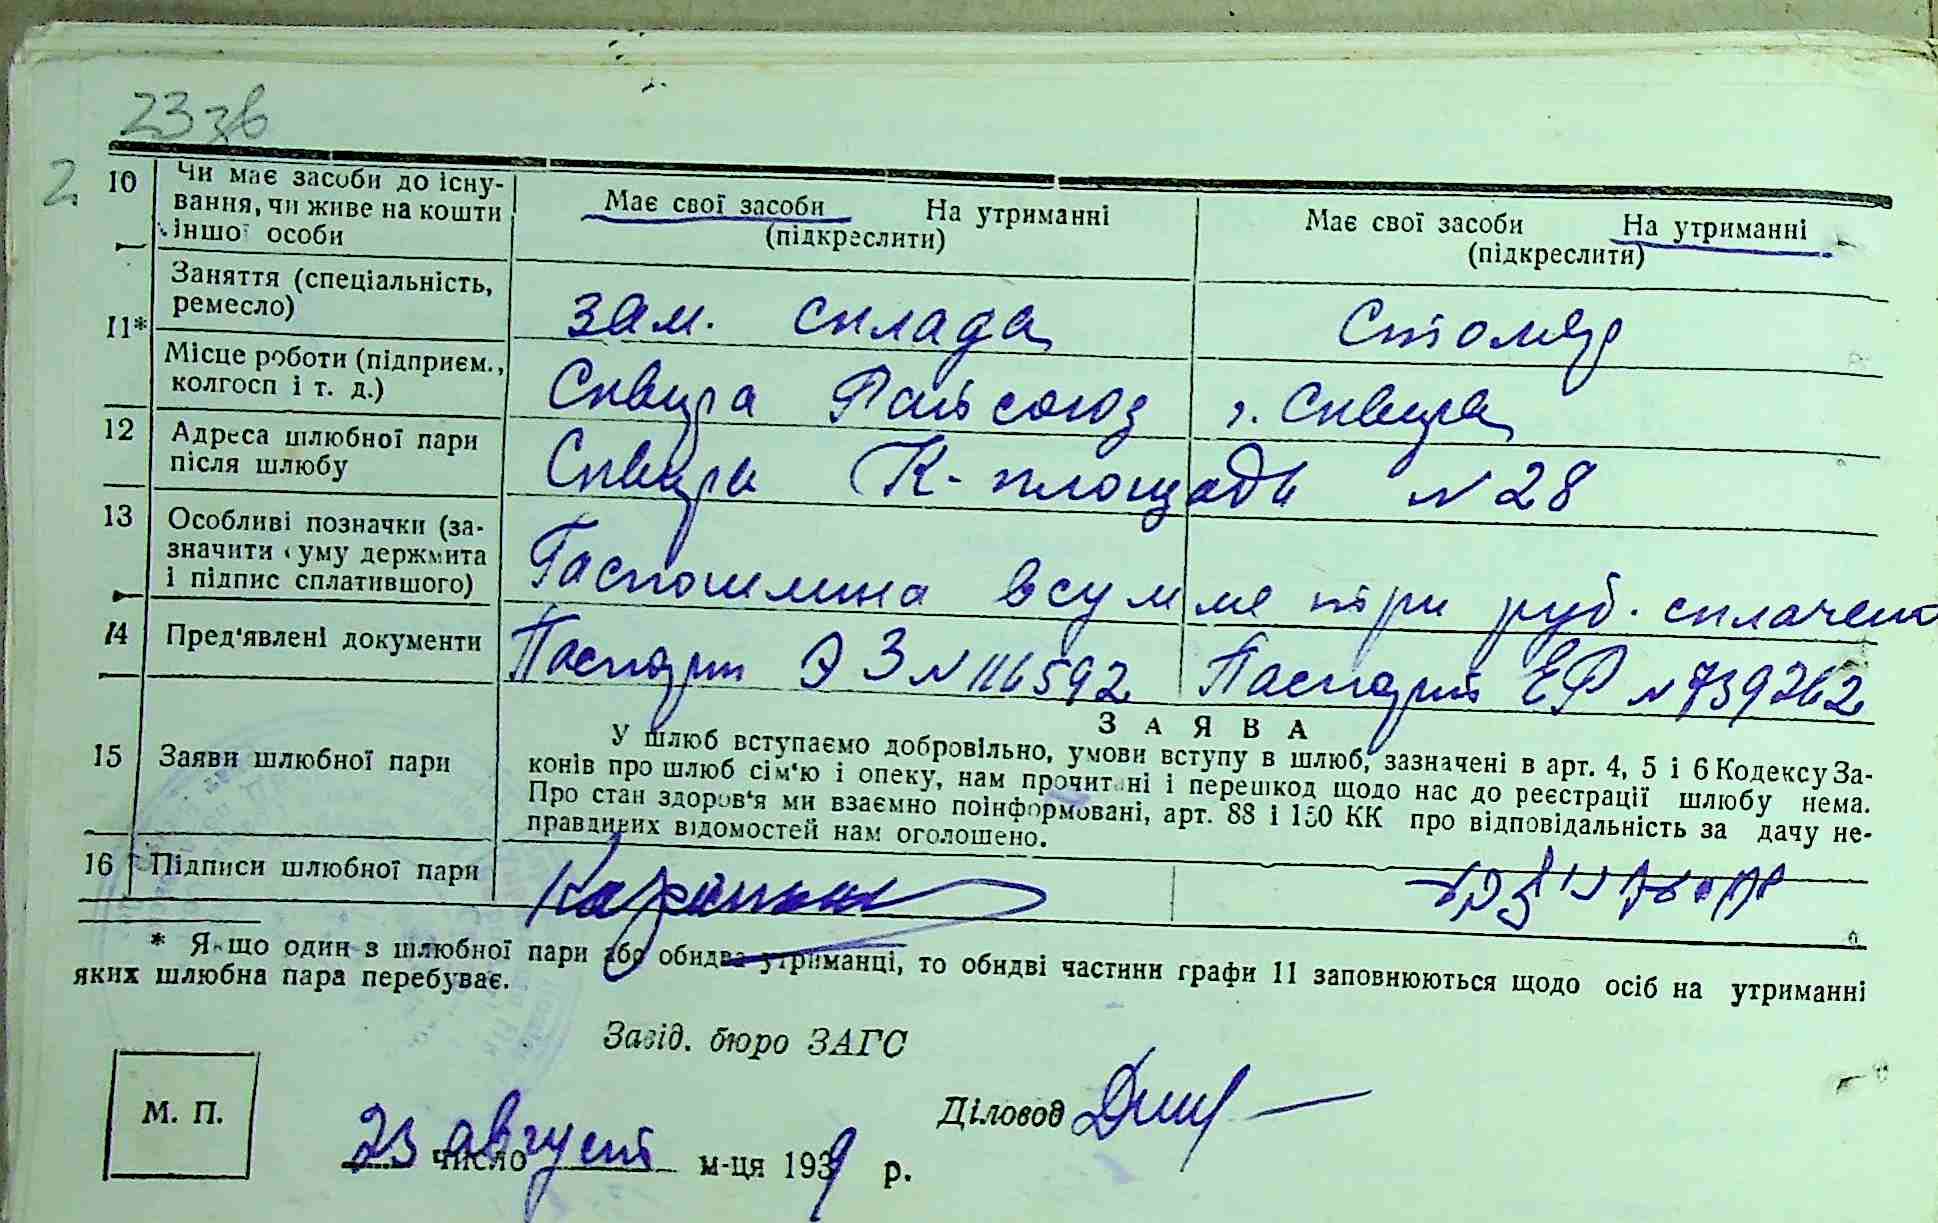 23 зв
2
10 Чи має засоби до існу-
вання, чи живе на кошти
іншої особи
Має свої засоби На утриманні
(підкреслити)
Має свої засоби На утриманні
(підкреслити)
11* Заняття (спеціальність,
ремесло)
зам. склада
Столяр
Місце роботи (підприєм.,
колгосп і т. д.)
Сквира Райсоюз
г. Сквира
12 Адреса шлюбної пари
після шлюбу
Сквира К-площадь N 28
13 Особливі позначки (за-
значити суму держмита
і підпис сплатившого)
Госпошлина в сумме три руб. сплачено
14 Пред'явлені документи
Паспорт ЭЗ N 116592
Паспорт ЕФ N 739262
15 Заяви шлюбної пари
ЗАЯВА
У шлюб вступаємо добровільно, умови вступу в шлюб, зазначені в арт. 4, 5 і 6 Кодексу За-
конів про шлюб сім'ю і опеку, нам прочитані і перешкод щодо нас до реєстрації шлюбу нема.
Про стан здоров'я ми взаємно поінформовані, арт. 88 і 150 КК про відповідальність за дачу не-
правдивих відомостей нам оголошено.
16 Підписи шлюбної пари
* Якщо один з шлюбної пари або обидва утриманці, то обидві частини графи 11 заповнюються щодо осіб на утриманні
яких шлюбна пара перебуває.
Завід. бюро ЗАГС
М. П.
Діловод
23 число август м-ця 1939 р.